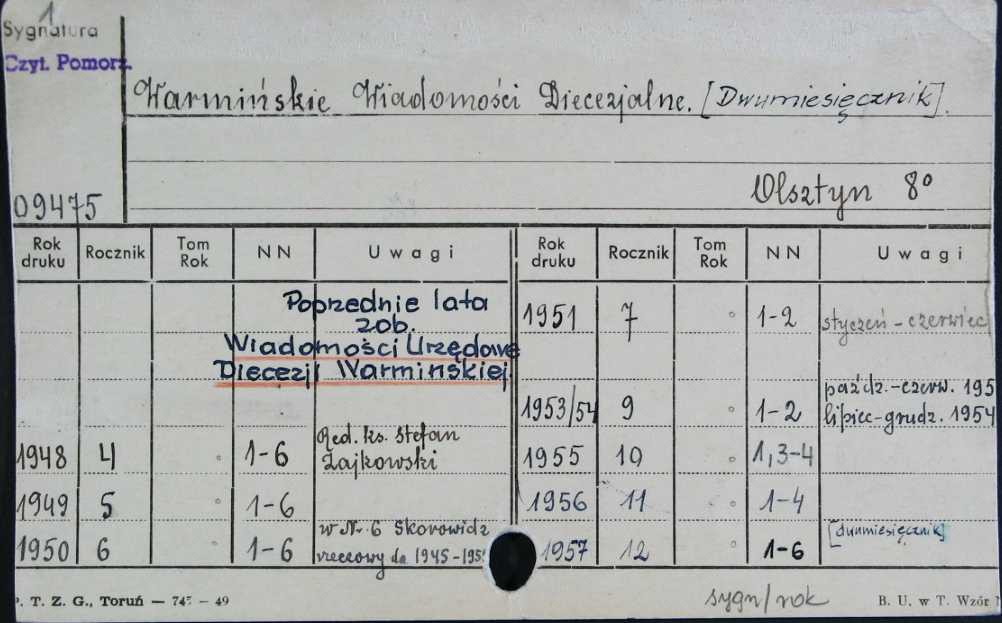 1
Sygnatura
Czyt. Pomorz.
Warmińskie Wiadomości Diecezjalne. [Dwumiesięcznik].
Olsztyn 8°
09475
Rok druku Rocznik Tom Rok NN Uwagi Rok druku Rocznik Tom Rok NN Uwagi
Poprzednie lata
zob.
Wiadomości Urzędowe
Diecezji Warmińskiej
1948 4 1-6 Red. ks. Stefan Zajkowski
1949 5 1-6
1950 6 1-6 w Nr. 6 Skorowidz rzeczowy da 1945-195
1951 7 1-2 styczeń-czerwiec
1953/54 9 1-2 paźdz.-czerw. 195 lipiec-grudz. 1954
1955 10 1,3-4
1956 11 1-4
1957 12 1-6 [dwumiesięcznik]
P. T. Z. G., Toruń — 745 — 49
sygn/rok
B. U. w T. Wzór